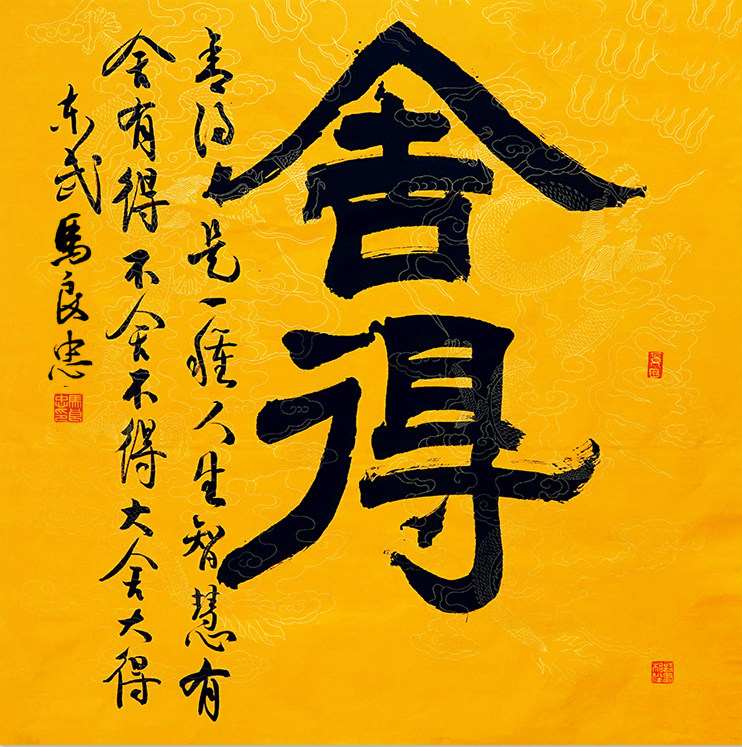 舍得
得是一種人生智慧有
舍有得不舍不得大舍大得
东武馬良忠